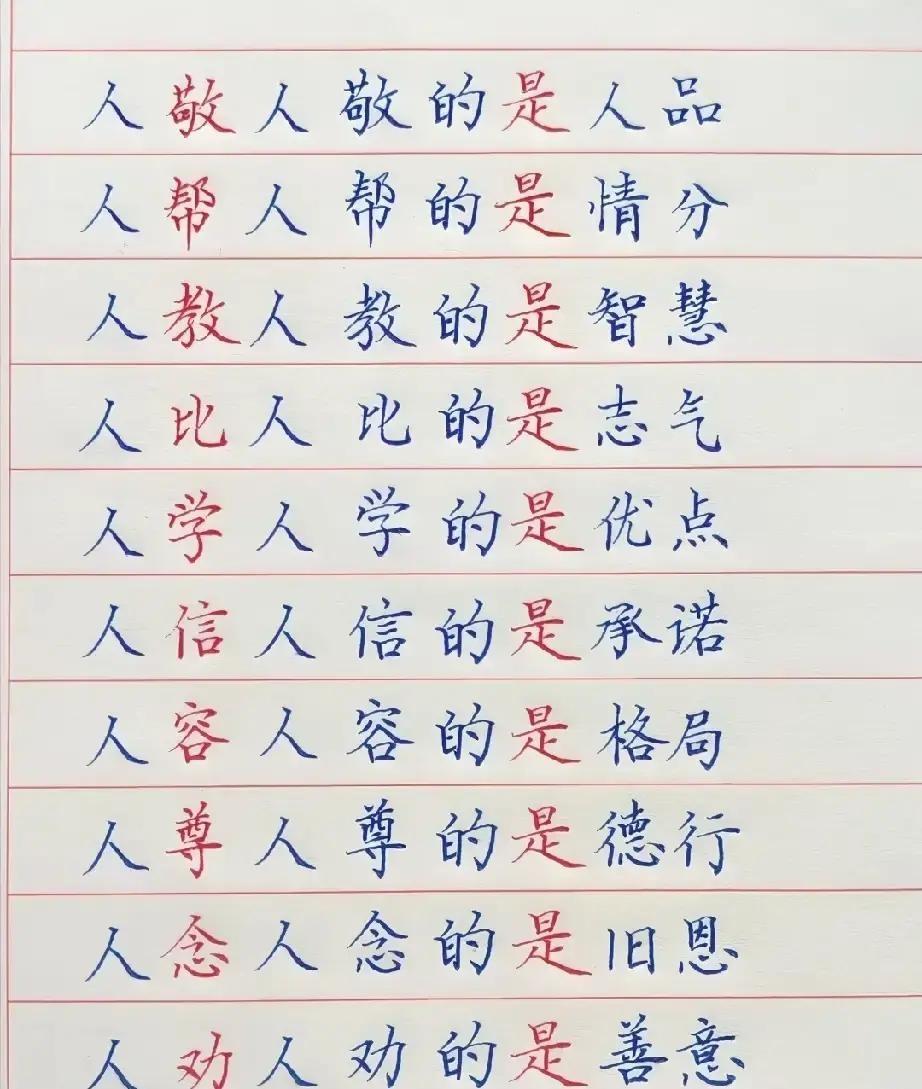 人敬人敬的是人品
人帮人帮的是情分
人教人教的是智慧
人比人比的是志气
人学人学的是优点
人信人信的是承诺
人容人容的是格局
人尊人尊的是德行
人念人念的是旧恩
人劝人劝的是善意